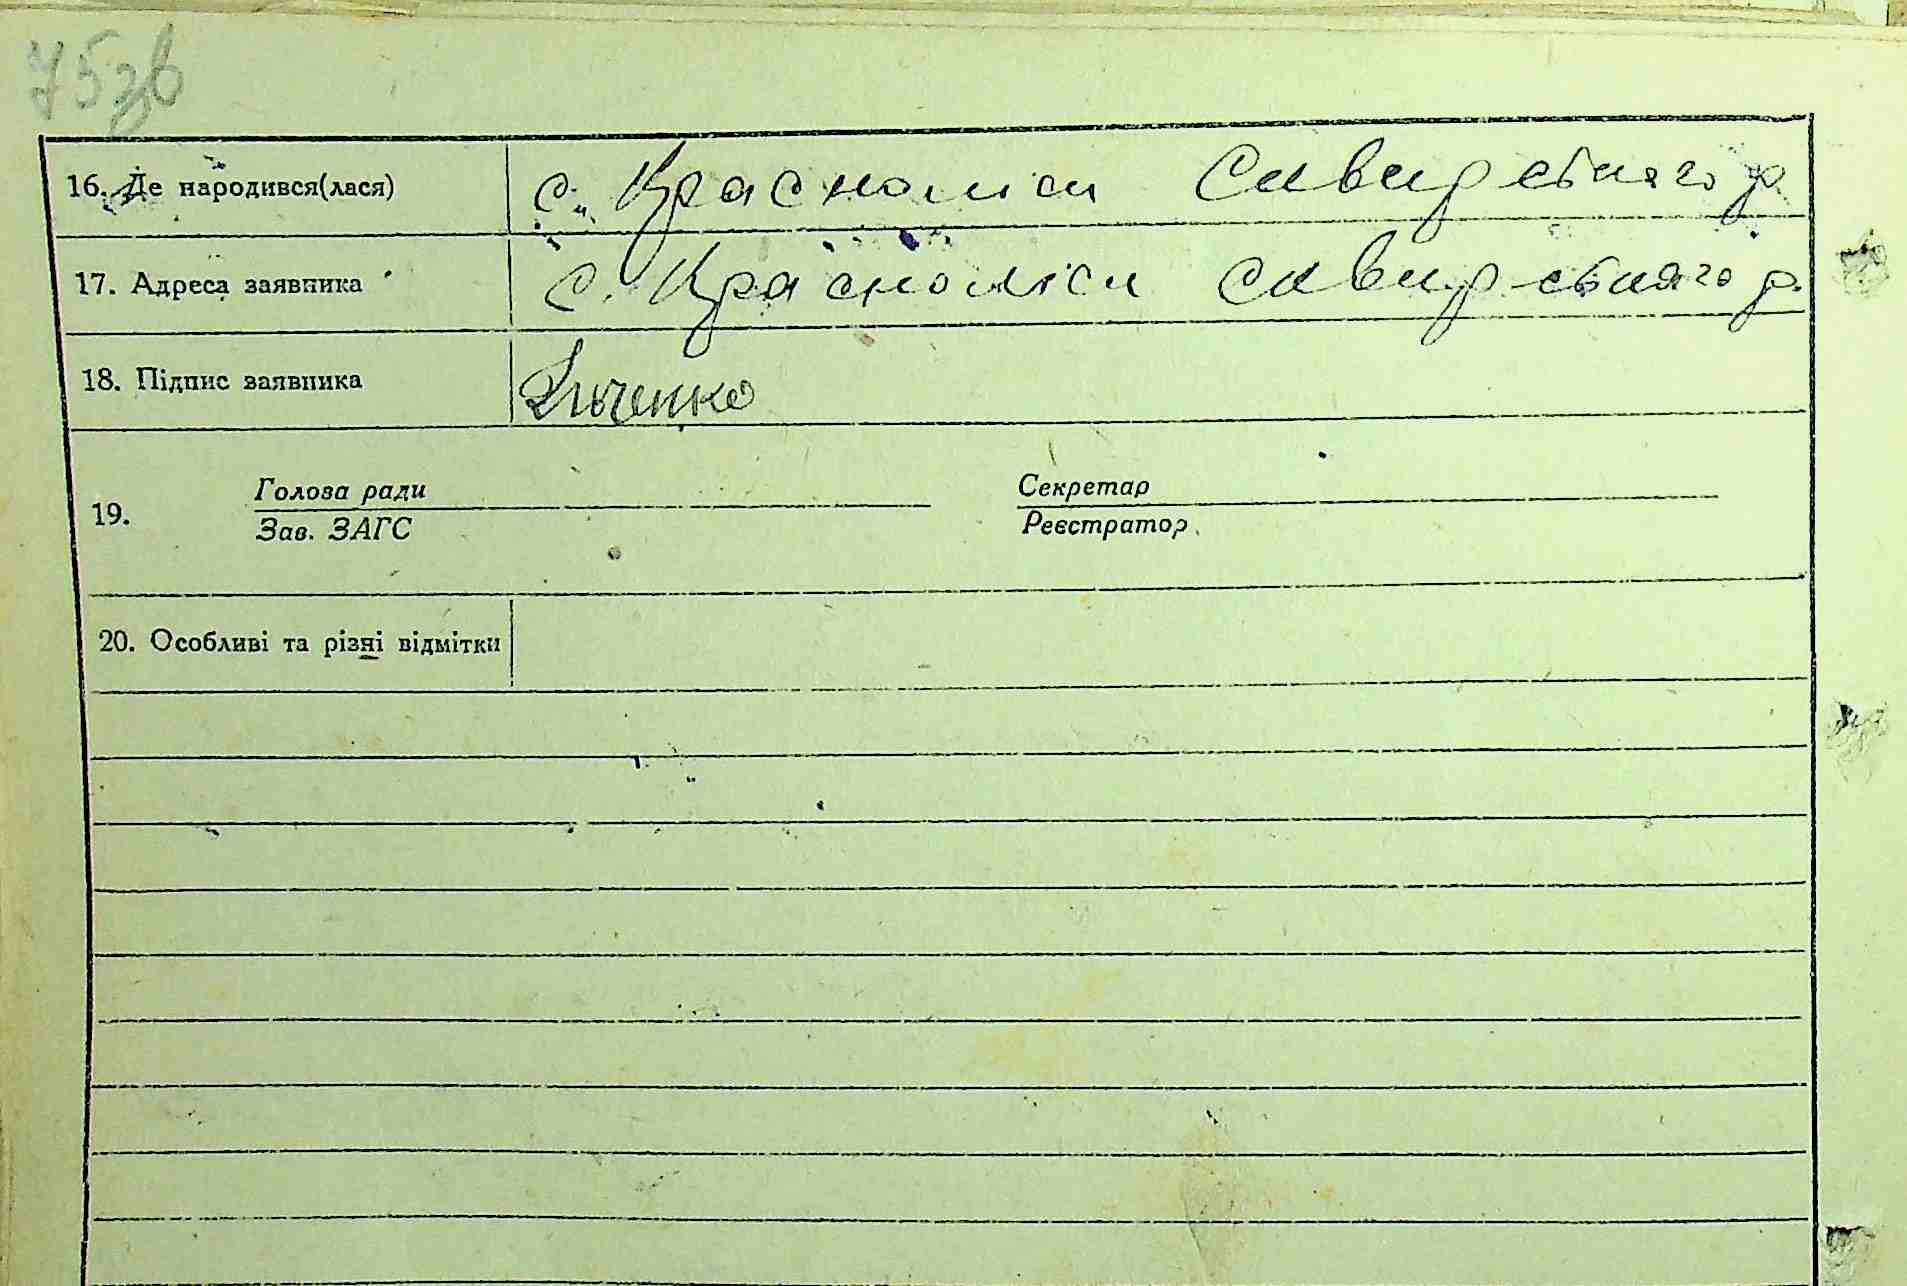 75зв
16. Де народився(лася) с. Красноліси Сквирського р
17. Адреса заявника с. Красноліси Сквирського р.
18. Підпис заявника Ільченко
19. Голова ради Секретар
Зав. ЗАГС Реєстратор
20. Особливі та різні відмітки